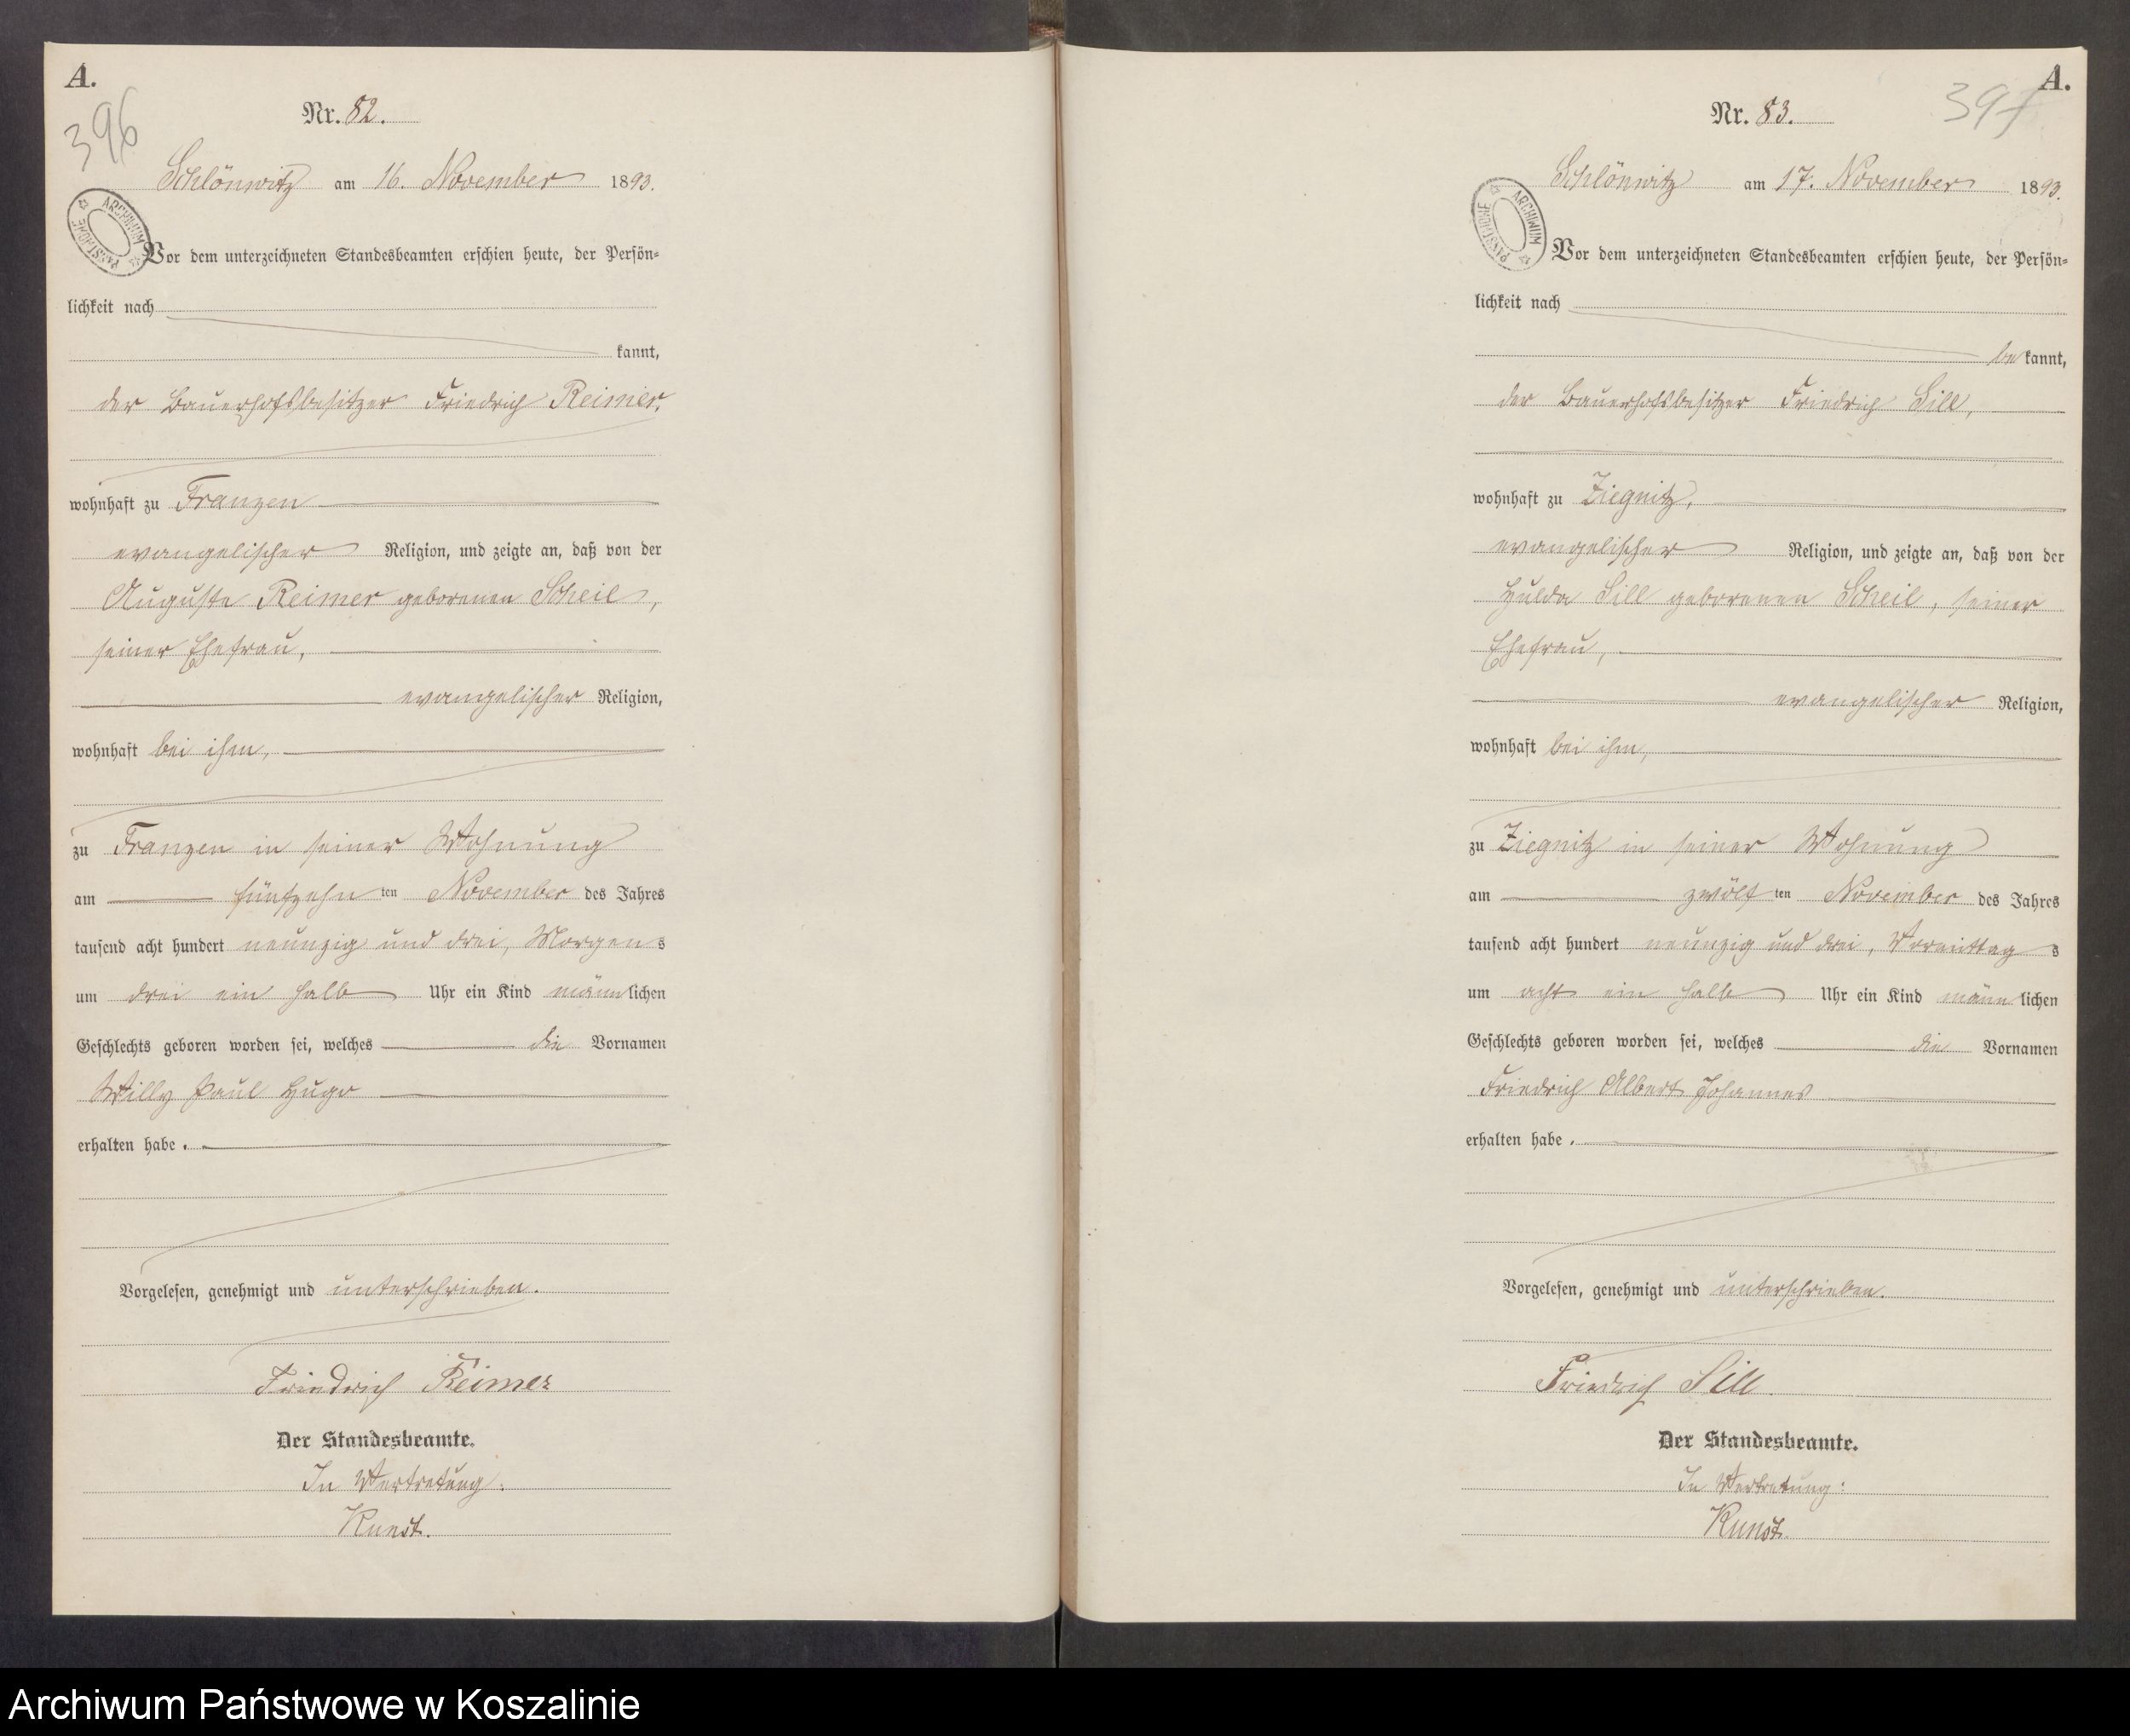 A.
396
Nr. 82.
Schlönwitz am 16. November 1893.
ARCHIWUM PAŃSTWOWE
Vor dem unterzeichneten Standesbeamten erschien heute, der Persön-
lichkeit nach
kannt,
der Bauerhofsbesitzer Friedrich Reimer,
wohnhaft zu Franzen
evangelischer Religion, und zeigte an, daß von der
Auguste Reimer geborenen Scheil,
seiner Ehefrau,
evangelischer Religion,
wohnhaft bei ihm,
zu Franzen in seiner Wohnung
am fünfzehn ten November des Jahres
tausend acht hundert neunzig und drei, Morgens
um drei ein halb Uhr ein Kind männlichen
Geschlechts geboren worden sei, welches die Vornamen
Willy Paul Hugo
erhalten habe.
Vorgelesen, genehmigt und unterschrieben.
Friedrich Reimer
Der Standesbeamte.
In Vertretung:
Kunst.
A.
397
Nr. 83.
Schlönwitz am 17. November 1893.
ARCHIWUM PAŃSTWOWE
Vor dem unterzeichneten Standesbeamten erschien heute, der Persön-
lichkeit nach
bekannt,
der Bauerhofsbesitzer Friedrich Sill,
wohnhaft zu Ziegnitz,
evangelischer Religion, und zeigte an, daß von der
Hulda Sill geborenen Scheil, seiner
Ehefrau,
evangelischer Religion,
wohnhaft bei ihm,
zu Ziegnitz in seiner Wohnung
am zwölf ten November des Jahres
tausend acht hundert neunzig und drei, Vormittags
um acht ein halb Uhr ein Kind männlichen
Geschlechts geboren worden sei, welches die Vornamen
Friedrich Albert Johannes
erhalten habe.
Vorgelesen, genehmigt und unterschrieben.
Friedrich Sill
Der Standesbeamte.
In Vertretung:
Kunst.
Archiwum Państwowe w Koszalinie